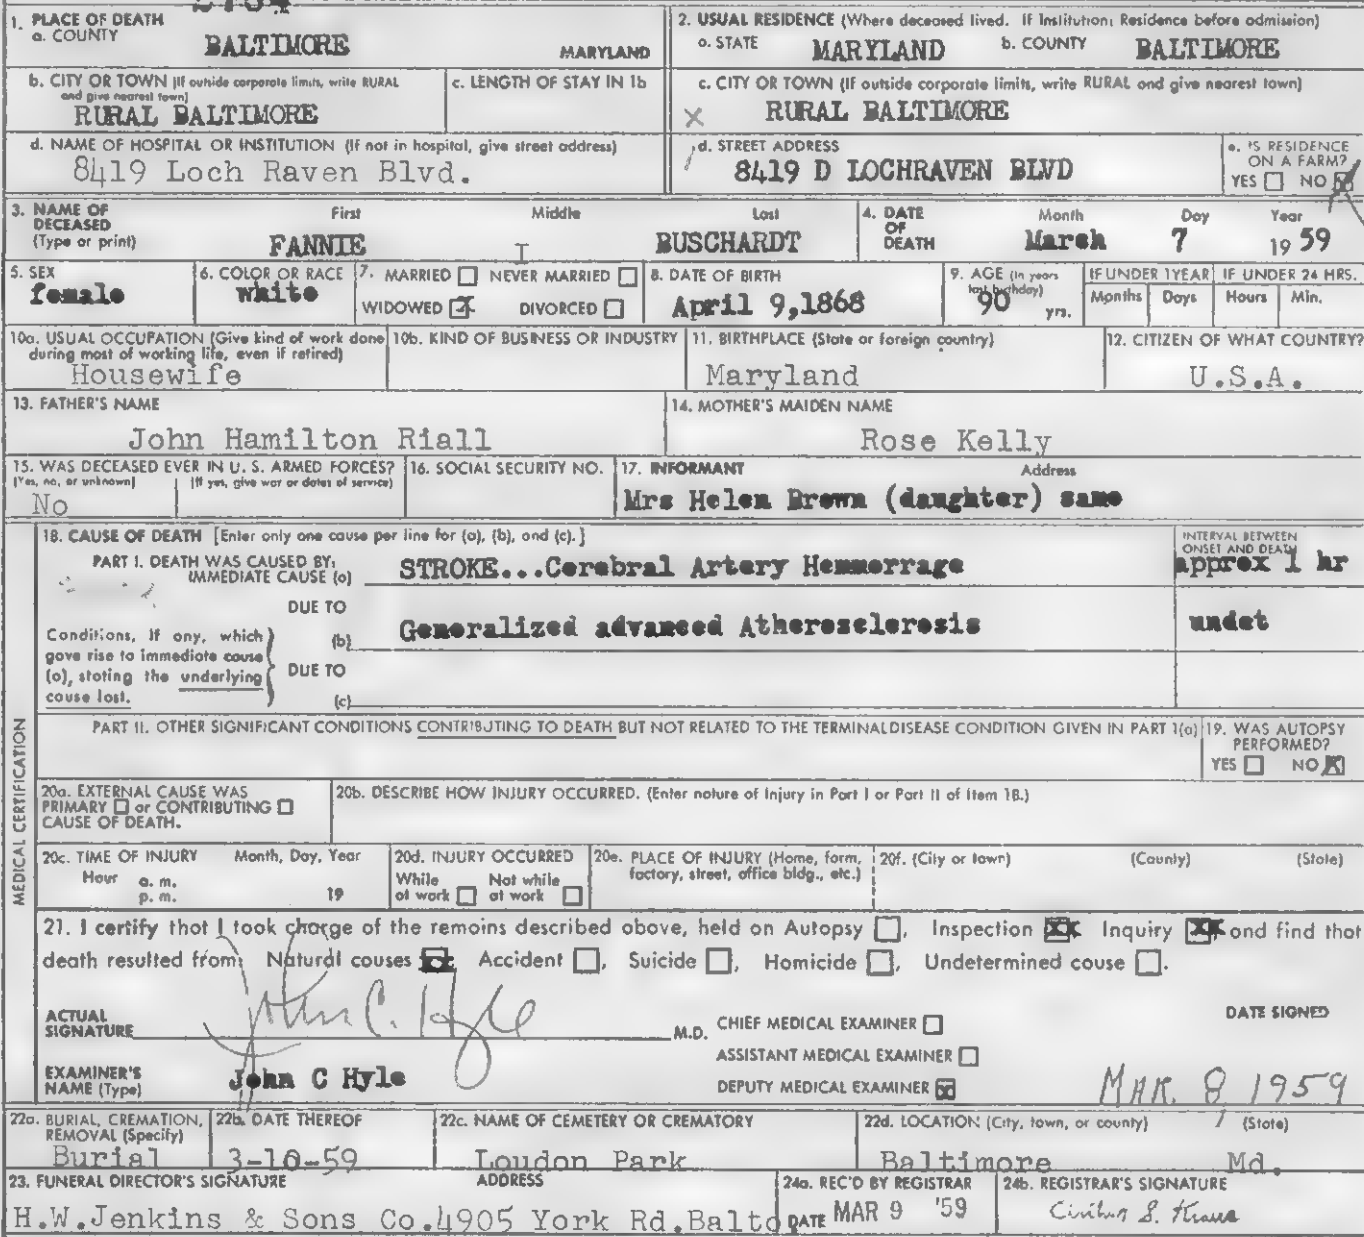 1. PLACE OF DEATH
a. COUNTY
BALTIMORE MARYLAND
2. USUAL RESIDENCE (Where deceased lived. If Institution: Residence before admission)
a. STATE MARYLAND b. COUNTY BALTIMORE
b. CITY OR TOWN (If outside corporate limits, write RURAL and give nearest town)
RURAL BALTIMORE
c. LENGTH OF STAY IN 1b
c. CITY OR TOWN (If outside corporate limits, write RURAL and give nearest town)
RURAL BALTIMORE
d. NAME OF HOSPITAL OR INSTITUTION (If not in hospital, give street address)
8419 Loch Raven Blvd.
d. STREET ADDRESS
8419 D LOCHRAVEN BLVD
e. IS RESIDENCE ON A FARM?
YES NO X
3. NAME OF DECEASED (Type or print)
First Middle Last
FANNIE I BUSCHARDT
4. DATE OF DEATH
Month Day Year
March 7 1959
5. SEX
female
6. COLOR OR RACE
white
7. MARRIED NEVER MARRIED
WIDOWED X DIVORCED
8. DATE OF BIRTH
April 9,1868
9. AGE (In years last birthday)
90 yrs.
IF UNDER 1 YEAR
Months Days
IF UNDER 24 HRS.
Hours Min.
10a. USUAL OCCUPATION (Give kind of work done during most of working life, even if retired)
Housewife
10b. KIND OF BUSINESS OR INDUSTRY
11. BIRTHPLACE (State or foreign country)
Maryland
12. CITIZEN OF WHAT COUNTRY?
U.S.A.
13. FATHER'S NAME
John Hamilton Riall
14. MOTHER'S MAIDEN NAME
Rose Kelly
15. WAS DECEASED EVER IN U. S. ARMED FORCES?
(Yes, no, or unknown) (If yes, give war or dates of service)
No
16. SOCIAL SECURITY NO.
17. INFORMANT Address
Mrs Helen Brown (daughter) same
MEDICAL CERTIFICATION
18. CAUSE OF DEATH [Enter only one cause per line for (a), (b), and (c).]
INTERVAL BETWEEN ONSET AND DEATH
PART I. DEATH WAS CAUSED BY:
IMMEDIATE CAUSE (a) STROKE...Cerebral Artery Hemmorrage approx 1 hr
DUE TO
Conditions, if any, which gave rise to immediate cause (a), stating the underlying cause last.
(b) Generalized advanced Atherosclerosis undet
DUE TO
(c)
PART II. OTHER SIGNIFICANT CONDITIONS CONTRIBUTING TO DEATH BUT NOT RELATED TO THE TERMINAL DISEASE CONDITION GIVEN IN PART I(a)
19. WAS AUTOPSY PERFORMED?
YES NO X
20a. EXTERNAL CAUSE WAS
PRIMARY or CONTRIBUTING
CAUSE OF DEATH.
20b. DESCRIBE HOW INJURY OCCURRED. (Enter nature of injury in Part I or Part II of Item 18.)
20c. TIME OF INJURY Month, Day, Year
Hour a. m.
p. m. 19
20d. INJURY OCCURRED
While at work Not while at work
20e. PLACE OF INJURY (Home, form, factory, street, office bldg., etc.)
20f. (City or town) (County) (State)
21. I certify that I took charge of the remains described above, held on Autopsy , Inspection XX Inquiry XX and find that
death resulted from: Natural causes XX Accident , Suicide , Homicide , Undetermined cause .
ACTUAL SIGNATURE John C. Hyle M.D.
CHIEF MEDICAL EXAMINER
DATE SIGNED
ASSISTANT MEDICAL EXAMINER
EXAMINER'S NAME (Type) John C Hyle
DEPUTY MEDICAL EXAMINER XX
MAR. 8, 1959
22a. BURIAL, CREMATION, REMOVAL (Specify)
Burial
22b. DATE THEREOF
3-10-59
22c. NAME OF CEMETERY OR CREMATORY
Loudon Park
22d. LOCATION (City, town, or county) (State)
Baltimore Md.
23. FUNERAL DIRECTOR'S SIGNATURE ADDRESS
H.W.Jenkins & Sons Co.4905 York Rd.Balto
24a. REC'D BY REGISTRAR
DATE MAR 9 '59
24b. REGISTRAR'S SIGNATURE
S. Kraus